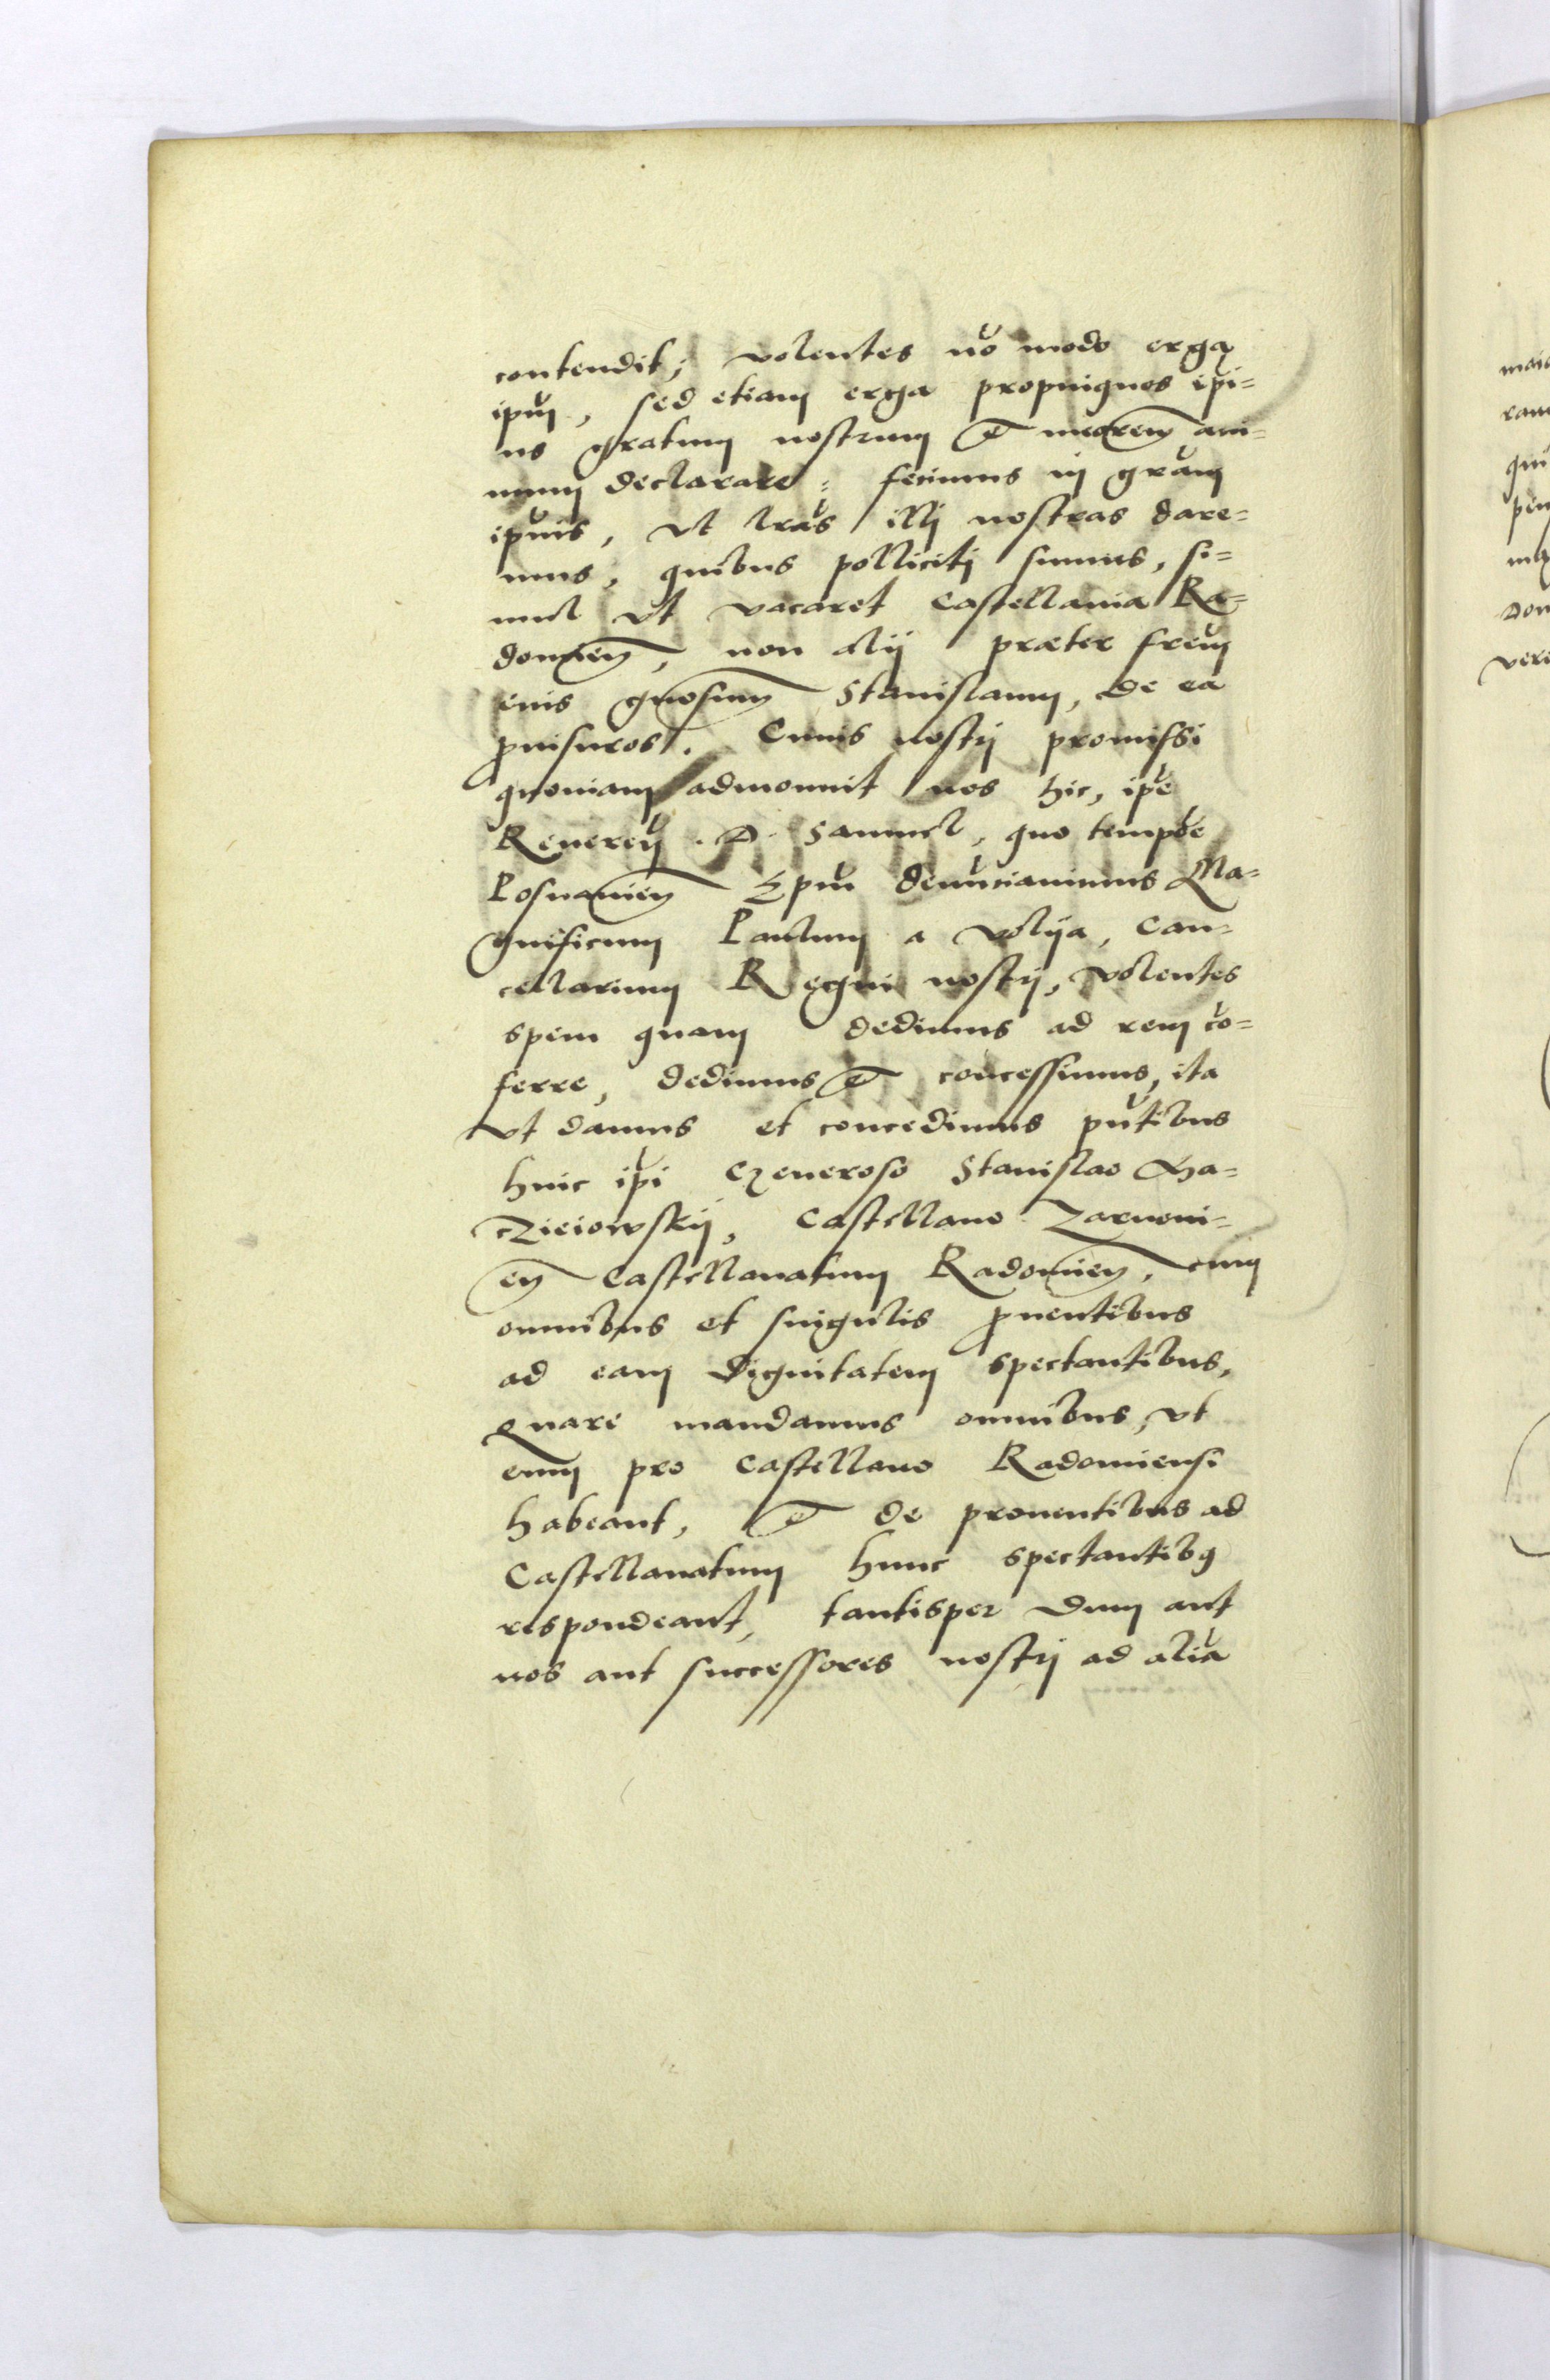 contendit; volentes nō modo erga
ipūm, sed etiam erga propinquos ipī=
us gratum nostrum et memorem ani=
mum declarare: fecimus in grām
ipīus, Vt lrās illj nostras dare=
mus, quibus pollicitj sumus, si=
mul vt vacaret Castellania Ra=
domien, non alij præter frēm
eius gnosum Stanislaum, de ea
puisuros. Cuius nostrj promissi
quoniam admonuit nos hic, ipē
Reueren. D. Samuel, quo tempōe
Posnanien Epūm denūciauimus Ma=
gnificum Paulum a Volya, Can=
cellarium Regni nostrj, volentes
spem quam dedimus ad rem cō=
ferre, dedimus et concessimus, ita
vt damus et concedimus pn̄tibus
huic ipī Generoso Stanislao Ma=
czieiowskij, Castellano Zarnoui=
en Castellanatum Radomien, cum
omnibus et singulis puentibus
ad eam dignitatem spectantibus,
Quare mandamus omnibus, vt
eum pro Castellano Radomiensi
habeant, et de prouentibus ad
Castellanatum hunc spectantibq
respondeant, tantisper dum aut
nos aut successores nostrj ad aliā
maio
ram
qui
pen
Don
vere